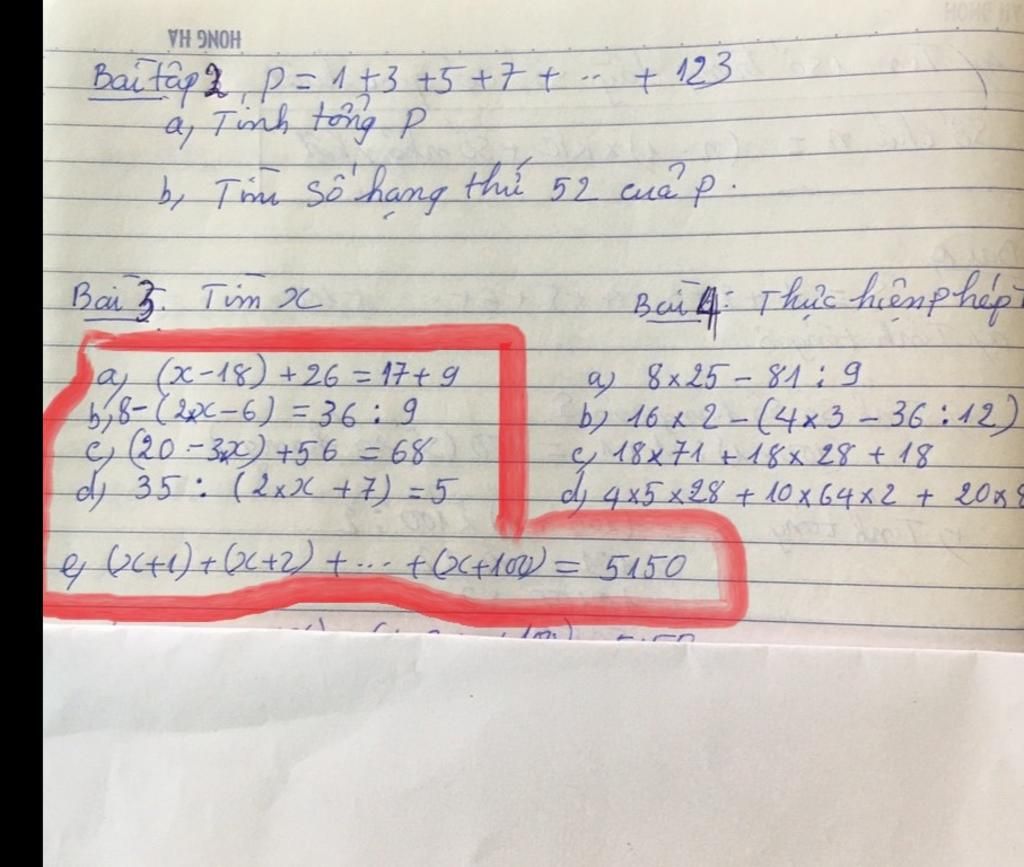 HONG HA
Bài tập 2, P = 1 + 3 + 5 + 7 + ... + 123
a, Tính tổng P
b, Tìm số hạng thứ 52 của P.
Bài 3. Tìm x
a, (x-18) + 26 = 17 + 9
b, 8 - (2xx - 6) = 36 : 9
c, (20 - 3x) + 56 = 68
d, 35 : (2 x x + 7) = 5
e, (x+1) + (x+2) + ... + (x+100) = 5150
Bài 4: Thực hiện phép
a) 8 x 25 - 81 : 9
b) 16 x 2 - (4 x 3 - 36 : 12)
c, 18 x 71 + 18 x 28 + 18
d, 4 x 5 x 28 + 10 x 64 x 2 + 20 x 8